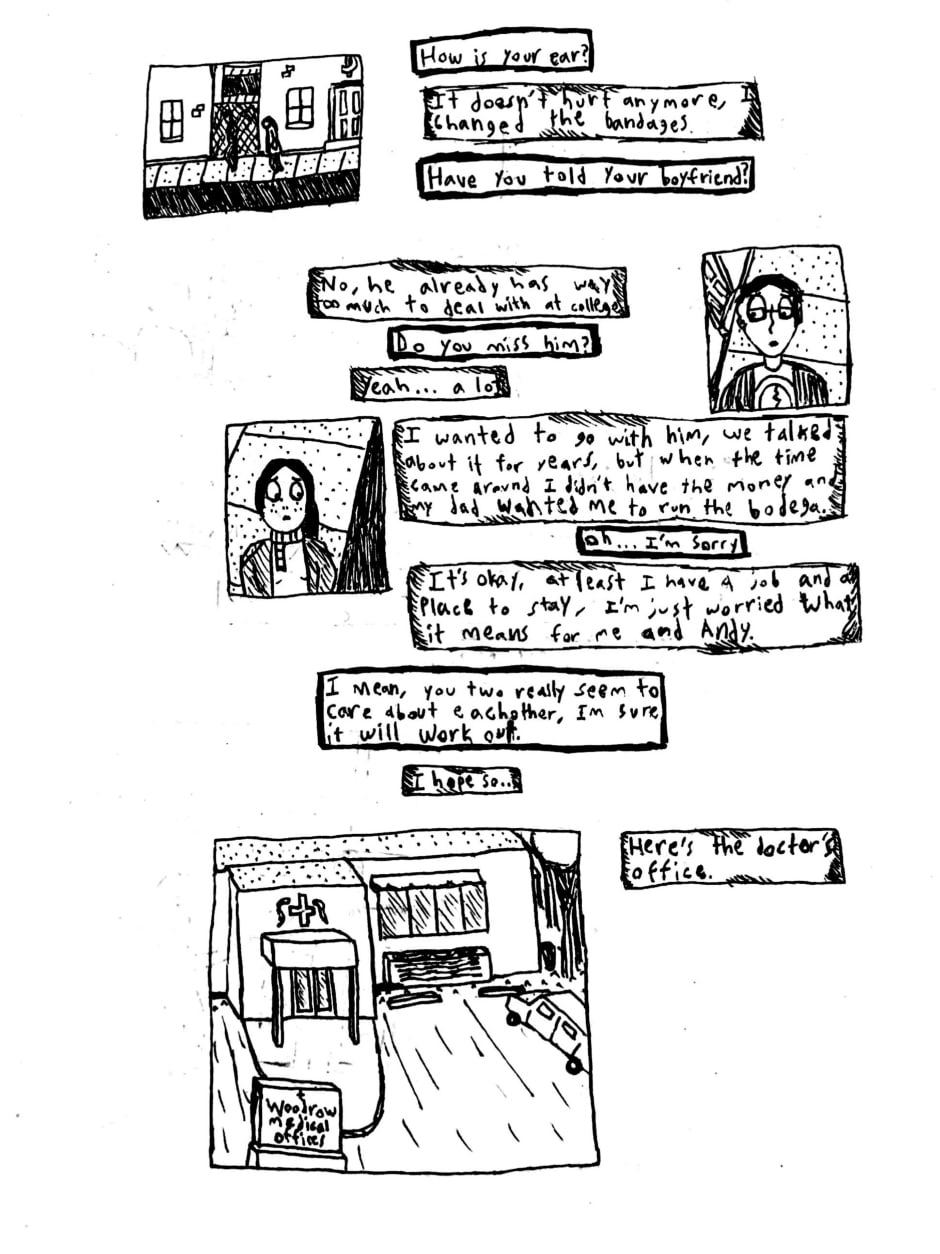 How is your ear?
It doesn't hurt anymore, I
changed the bandages.
Have you told your boyfriend?
No, he already has way
too much to deal with at college
Do you miss him?
Yeah... a lot
I wanted to go with him, we talked
about it for years, but when the time
came around I didn't have the money and
my dad wanted me to run the bodega.
oh... I'm sorry
It's okay, at least I have a job and a
place to stay, I'm just worried what
it means for me and Andy.
I mean, you two really seem to
care about eachother, Im sure
it will work out.
I hope so...
Here's the doctor's
office.
Woodrow
medical
offices